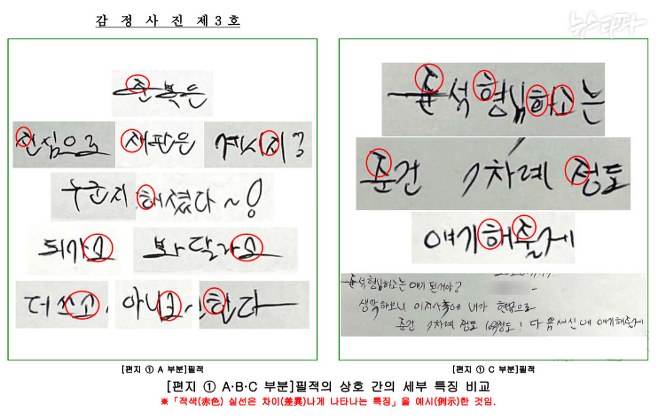 감 정 사 진 제 3 호
뉴스타파
준 복은
진심으로 재판은 계시지?
누군지 해졌다~!
되가고 봐 달라고
더 쓰고, 아니고! 한다
[편지 ① A 부분]필적
준석형님하고는
준건 7차례 정도
얘기해줄게
준석형님하고는 얘기 된거야?
생각해보니 이지사 내가 현금으로
준건 7차례 정도 다음 에 얘기해줄게
[편지 ① C 부분]필적
[편지 ① A·B·C 부분]필적의 상호 간의 세부 특징 비교
※「적색(赤色) 실선은 차이(差異)나게 나타나는 특징」을 예시(例示)한 것임.